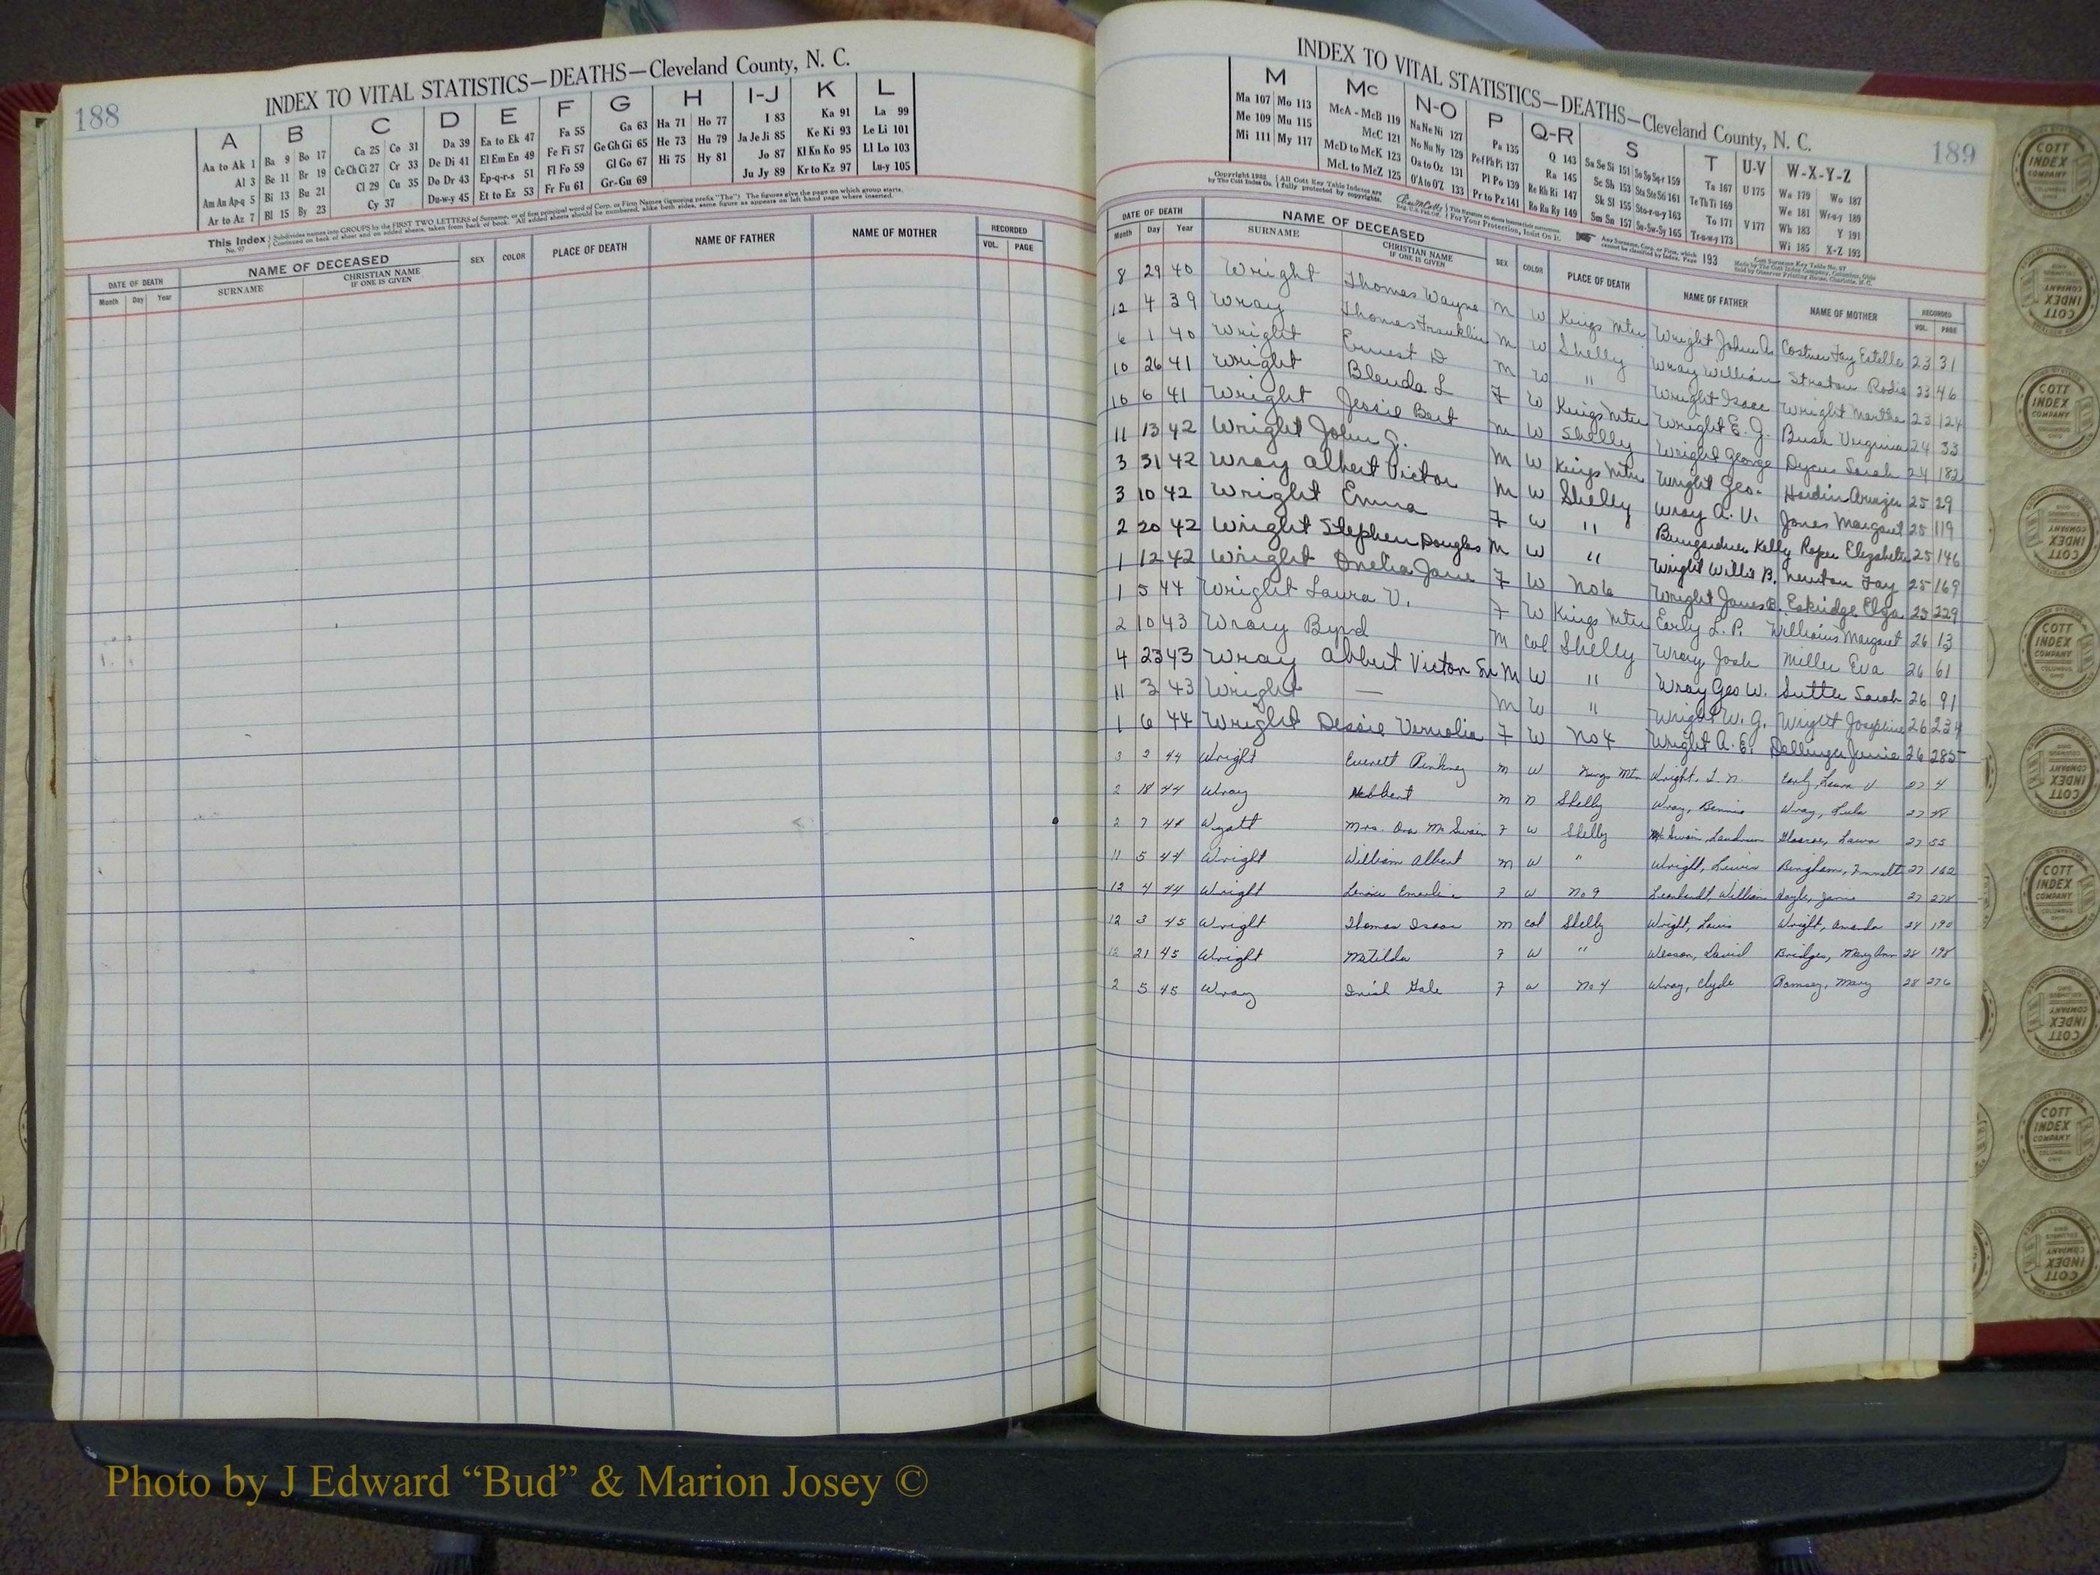 188
INDEX TO VITAL STATISTICS—DEATHS—Cleveland County, N. C.
A B C D E F G H I-J K L
Aa to Ak 1 Ba 9 Bo 17 Ca 25 Co 31 Da 39 Ea to Ek 47 Fa 55 Ga 63 Ha 71 Ho 77 I 83 Ka 91 La 99
Al 3 Be 11 Br 19 Ce Ch Ci 27 Cr 33 De Di 41 El Em En 49 Fe Fi 57 Ge Gh Gi 65 He 73 Hu 79 Ja Je Ji 85 Ke Ki 93 Le Li 101
Am An Ap-q 5 Bi 13 Bu 21 Cl 29 Cu 35 Do Dr 43 Ep-q-r-s 51 Fl Fo 59 Gl Go 67 Hi 75 Hy 81 Jo 87 Kl Kn Ko 95 Ll Lo 103
Ar to Az 7 Bl 15 By 23 Cy 37 Du-w-y 45 Et to Ez 53 Fr Fu 61 Gr-Gu 69 Ju Jy 89 Kr to Kz 97 Lu-y 105
This Index No. 97 Subdivides names into GROUPS by the FIRST TWO LETTERS of Surname, or of first principal word of Corp. or Firm Names (ignoring prefix "The") The figures give the page on which group starts.
Continued on back of sheet and on added sheets, taken from back of book. All added sheets should be numbered, alike both sides, same figure as appears on left hand page where inserted.
DATE OF DEATH NAME OF DECEASED SEX COLOR PLACE OF DEATH NAME OF FATHER NAME OF MOTHER RECORDED
Month Day Year SURNAME CHRISTIAN NAME IF ONE IS GIVEN VOL. PAGE
INDEX TO VITAL STATISTICS—DEATHS—Cleveland County, N. C.
189
M Mc N-O P Q-R S T U-V W-X-Y-Z
Ma 107 Mo 113 McA - McB 119 Na Ne Ni 127 Pa 135 Q 143 Sa Se Si 151 So Sp Sq-r 159 Ta 167 U 175 Wa 179 Wo 187
Me 109 Mu 115 McC 121 No Nu Ny 129 Pe-f Ph Pi 137 Ra 145 Sc Sh 153 Sta Ste Sti 161 Te Th Ti 169 We 181 Wr-u-y 189
Mi 111 My 117 McD to McK 123 Oa to Oz 131 Pl Po 139 Re Rh Ri 147 Sk Sl 155 Sto-r-u-y 163 To 171 V 177 Wh 183 Y 191
McL to McZ 125 O'A to O'Z 133 Pr to Pz 141 Ro Ru Ry 149 Sm Sn 157 Su-Sw-Sy 165 Tr-u-w-y 173 Wi 185 X-Z 193
Any Surname, Corp. or Firm, which cannot be classified by Index, Page 193
DATE OF DEATH NAME OF DECEASED SEX COLOR PLACE OF DEATH NAME OF FATHER NAME OF MOTHER RECORDED
Month Day Year SURNAME CHRISTIAN NAME IF ONE IS GIVEN VOL. PAGE
8 29 40 Wright Thomas Wayne M W Kings Mtn Wright John A. Costner Fay Estelle 23 31
12 4 39 Wray Thomas Franklin M W Shelby Wray William Straton 23 46
6 1 40 Wright Ernest D M W " Wright Isaac Wright Martha 23 124
10 26 41 Wright Blenda L F W Kings Mtn Wright E. J. Bush Virginia 24 33
10 6 41 Wright Jessie Bert M W Shelby Wright George Dycus Sarah 24 182
11 13 42 Wright John J. M W Kings Mtn Wright Geo. Hardin 25 29
3 31 42 Wray Albert Victor M W Shelby Wray A. V. Jones Margaret 25 119
3 10 42 Wright Emma F W " Bumgardner Kelly Roper Elizabeth 25 146
2 20 42 Wright Stephen Douglas M W " Wright Willis B. Newton Fay 25 169
1 12 42 Wright Jane F W No 6 Wright James B. Eskridge Eliza 25 229
1 5 44 Wright Laura V. F W Kings Mtn Early L. P. Williams Margaret 26 13
2 10 43 Wray Byrd M Col Shelby Wray, Josh Miller Eva 26 61
4 23 43 Wray Abbert Victor Sr M W " Wray Geo W. Suttle Sarah 26 91
11 3 43 Wright — M W " Wright W. G. Wright Josephine 26 234
1 6 44 Wright Dessie Vernolia F W No 4 Wright A. E. Dellinger Janie 26 285
3 2 44 Wright Everett Pinkney M W Kings Mtn Wright, I. N. Early, Laura V 27 4
2 18 44 Wray Hebbert M N Shelby Wray, Bennie Wray, Lula 27 48
2 7 44 Wyatt Mrs. Ora McSwain F W Shelby McSwain, Landrum Laura 27 55
11 5 44 Wright William Albert M W " Wright, Lewis Bingham, 27 162
12 4 44 Wright Emerline F W No 9 Leonhardt, William 27 278
12 3 45 Wright Thomas Isaac M Col Shelby Wright, Louis Wright, Amanda 28 190
12 21 45 Wright Matilda F W " Wesson, David Bridges, Mary Ann 28 198
2 5 45 Wray Gale F W No 4 Wray, Clyde Ramsey, Mary 28 276
COTT INDEX COMPANY OHIO
Photo by J Edward “Bud” & Marion Josey ©